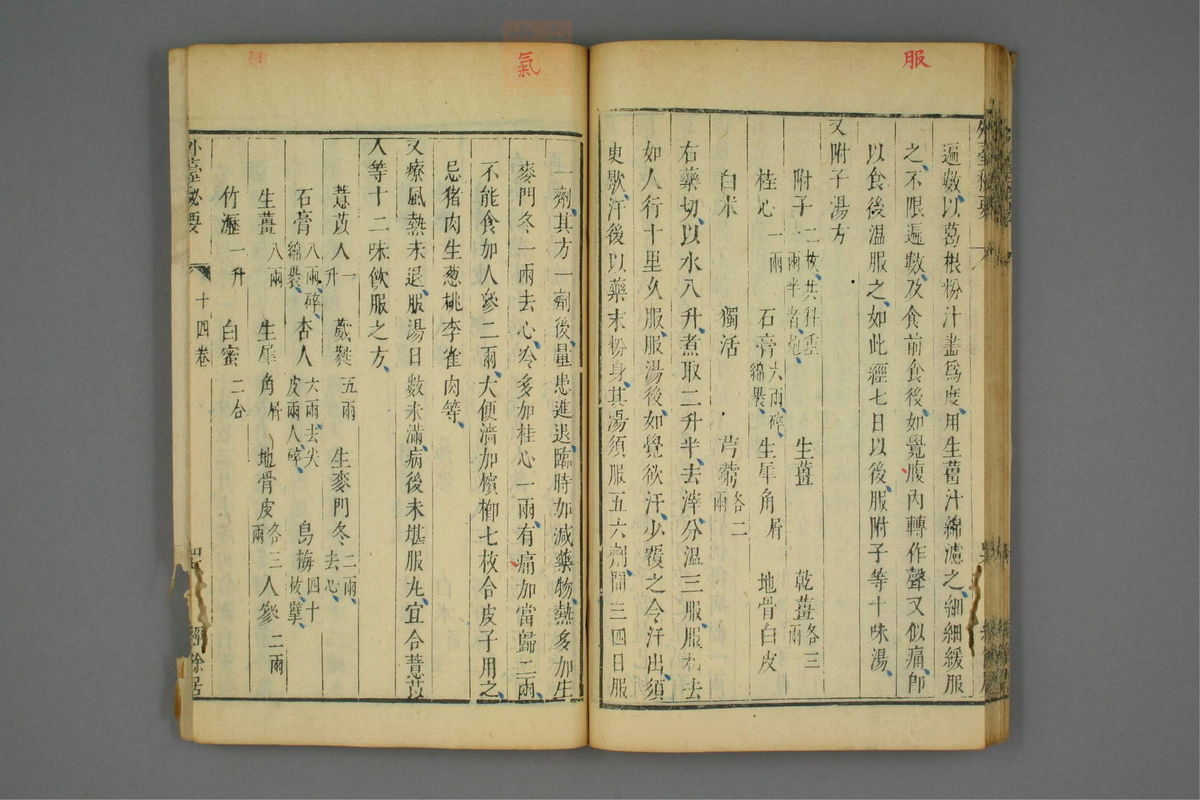 服
遍數、以葛根粉汁盡爲度、用生薑汁綿濾之、細細緩服
之、不限遍數、及食前食後、如覺腹內轉作聲又似痛、卽
以食後溫服之、如此經七日以後、服附子等十味湯、
又附子湯方
附子二枚、共秤重一兩半者、炮、 生薑 乾薑各三兩
桂心一兩 石膏六兩、碎、綿裹、 生犀角屑 地骨白皮
白朮 獨活 芎藭各二兩
右藥切、以水八升、煮取二升半、去滓、分溫三服、服相去
如人行十里久服、服湯後、如覺欲汗、少覆之令汗出、須
臾歇、汗後以藥末粉身、其湯須服五六劑、間三四日服
氣
一劑、其方一劑後、量患進退、臨時加減藥物、熱多加生
麥門冬一兩去心、冷多加桂心一兩、有痛加當歸二兩、
不能食加人參二兩、大便澀加檳榔七枚合皮子用之、
忌猪肉生葱桃李雀肉等、
又療風熱未退、服湯日數未滿、病後未堪服丸、宜合薏苡
人等十二味飲服之方、
薏苡人一升 葳蕤五兩 生麥門冬二兩、去心、
石膏八兩、碎、綿裹、 杏人六兩去尖皮兩人、碎、 烏梅四十枚、擘、
生薑八兩 生犀角屑 地骨皮各三兩 人參二兩
竹瀝一升 白蜜二合
外臺祕要 十四卷 經餘居